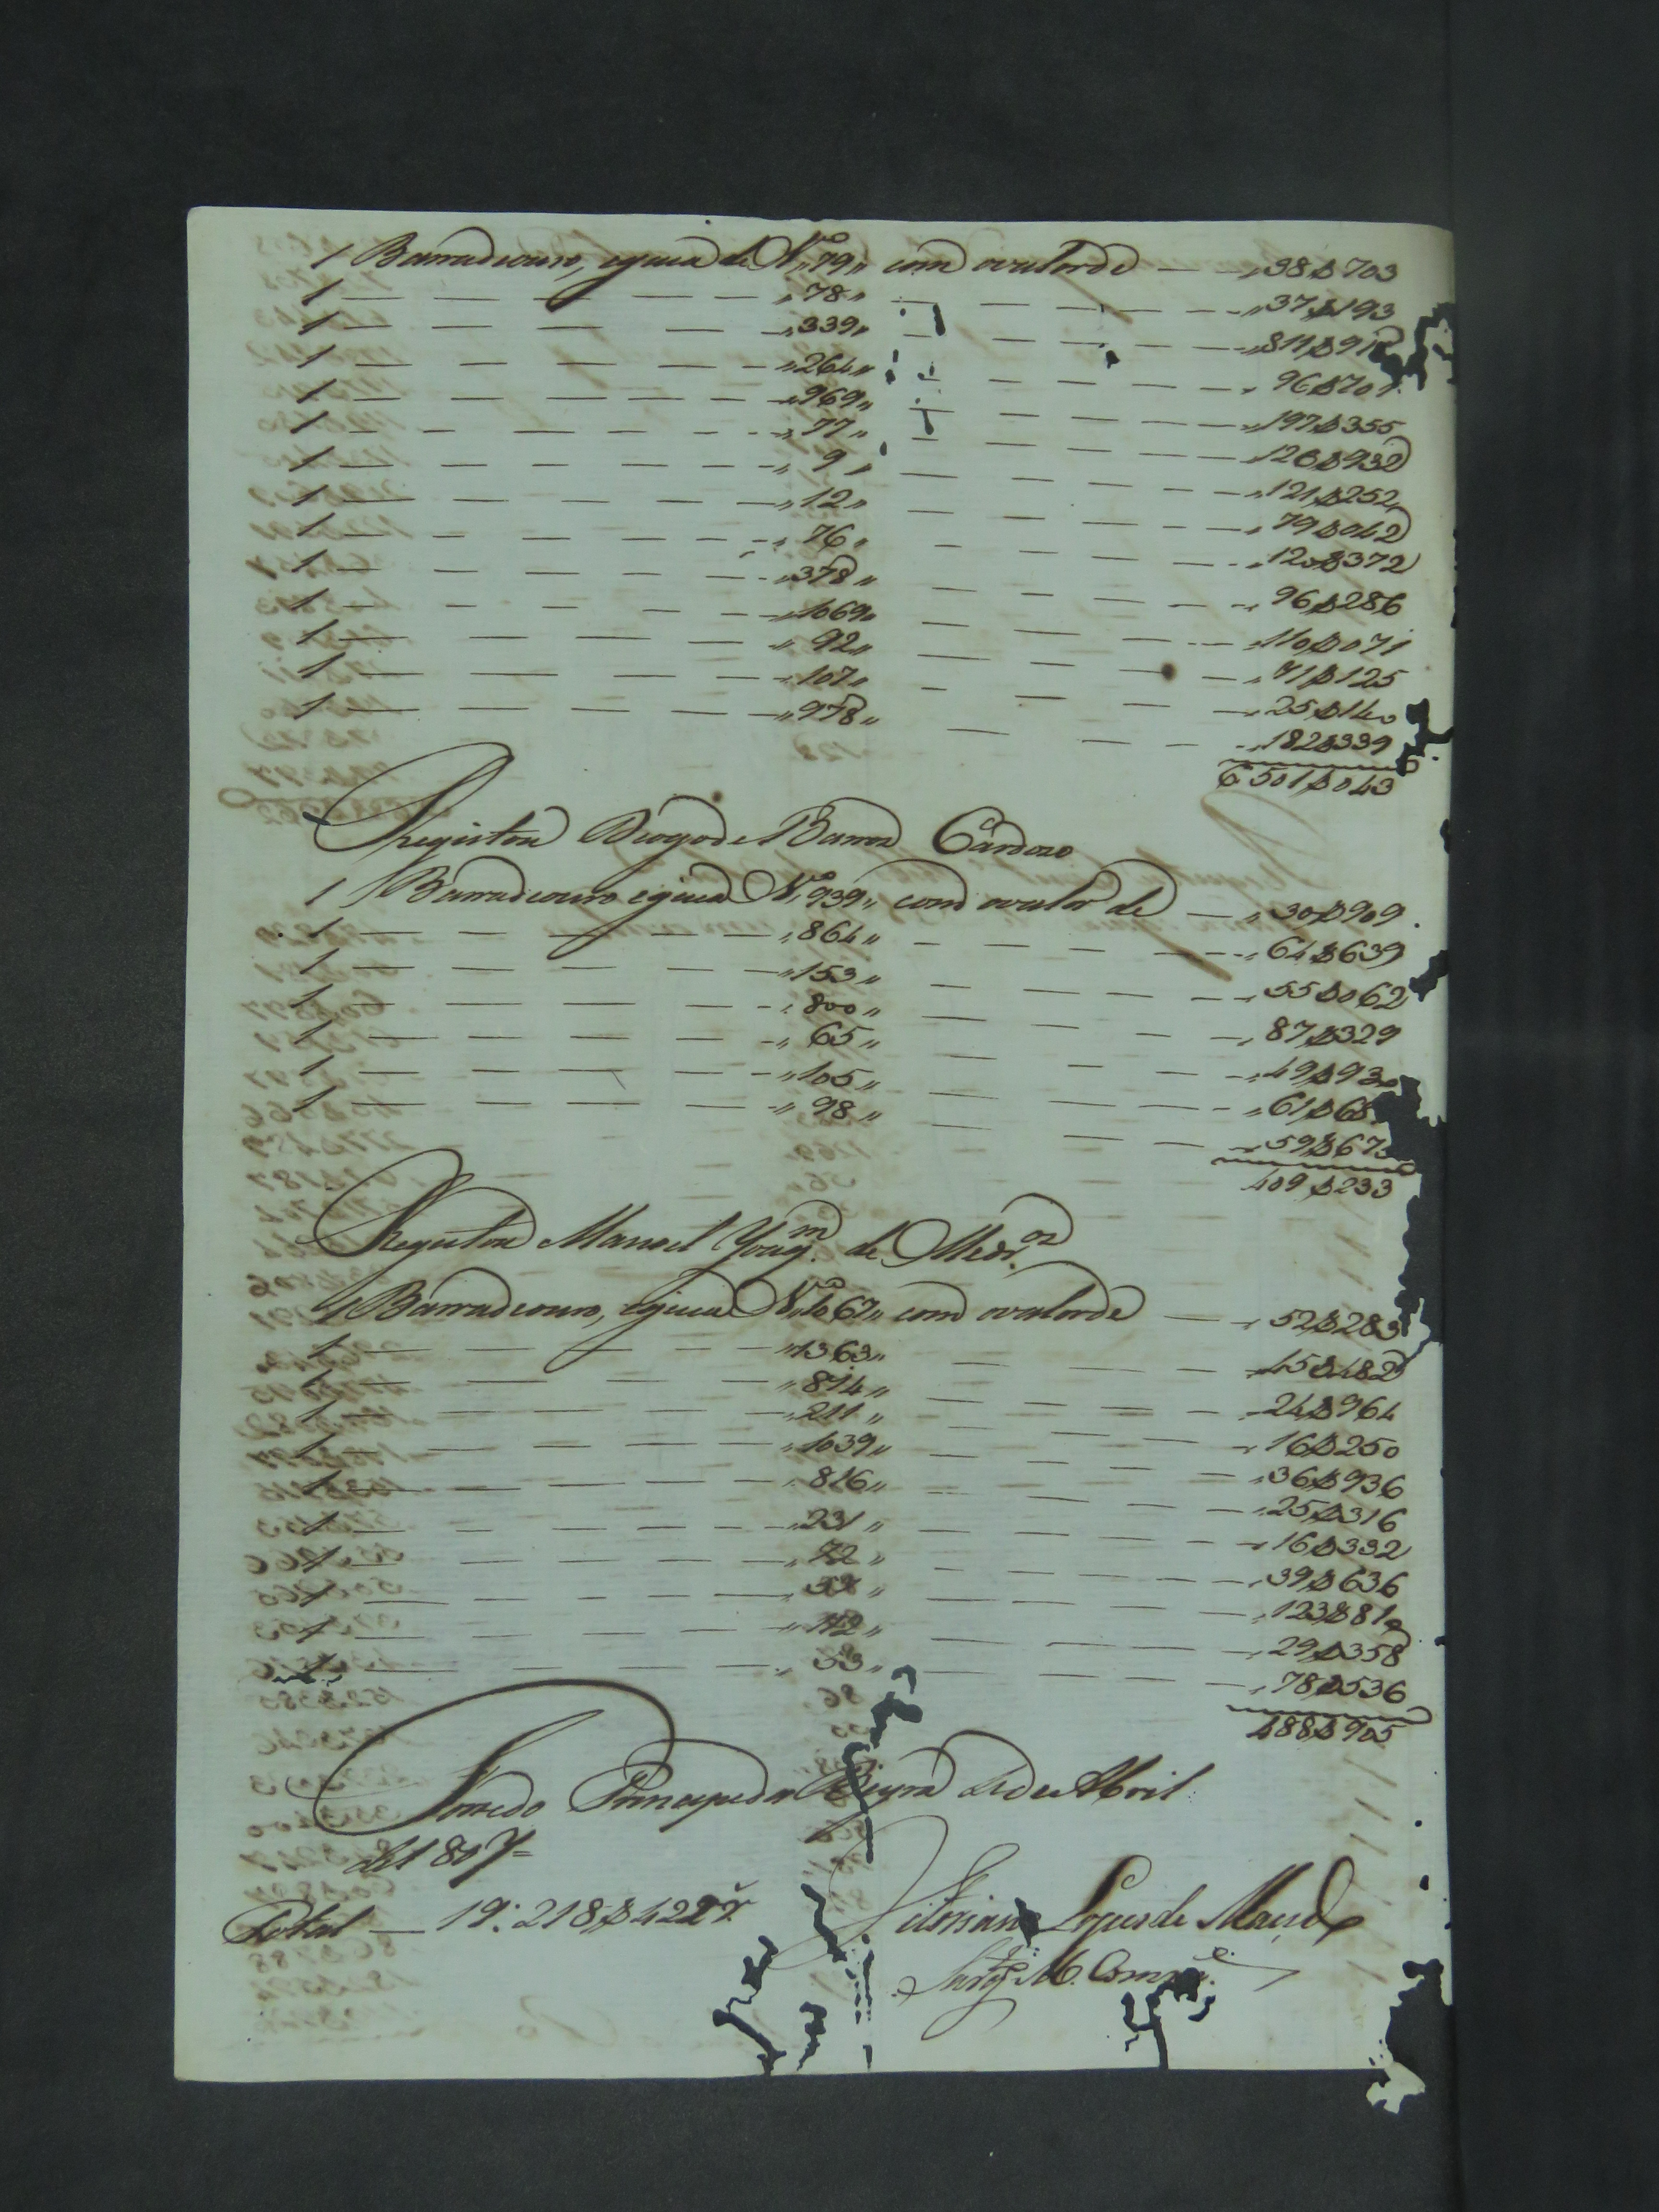 1 Barra de ouro, eguia de N.º "79" com o valor de — — "38$703
1 — — — — — "78" — — — — "37$193
1 — — — — — "339" — — — — "811$91
1 — — — — — "264" — — — — "96$701
1 — — — — — "969" — — — — "197$355
1 — — — — — "77" — — — — "126$932
1 — — — — — "9" — — — — "121$252
1 — — — — — "12" — — — — "79$042
1 — — — — — "76" — — — — "120$372
1 — — — — — "378" — — — — "96$286
1 — — — — — "1069" — — — — "110$071
1 — — — — — "92" — — — — "71$125
1 — — — — — "107" — — — — "25$140
1 — — — — — "978" — — — — "182$339
6501$043
Registou Diogo de Barros Cardozo
1 Barra de ouro eguia N.º 939" com o valor de — "30$909
1 — — — — — "864" — — — — "64$639
1 — — — — — "153" — — — — "55$062
1 — — — — — "800" — — — — "87$329
1 — — — — — "65" — — — — "49$930
1 — — — — — "105" — — — — "61$68
1 — — — — — "98" — — — — "59$67
409$233
Registou Manoel Joaq.m de Medr.os
1 Barra de ouro, eguia N.º 1067" com o valor de — — "52$283
1 — — — — — "1363" — — — — "45$482
1 — — — — — "814" — — — — "24$964
1 — — — — — "211" — — — — "16$250
1 — — — — — "1039" — — — — "36$936
1 — — — — — "816" — — — — "25$316
1 — — — — — "231" — — — — "16$332
1 — — — — — "72" — — — — "39$636
1 — — — — — — — — — "123$810
1 — — — — — "142" — — — — "29$358
1 — — — — — "53" — — — — "78$536
488$905
Forte do Principe da Beyra 4 de Abril
de 1807=
Total — 19:218$422 r.s
Vitoriano Lopes de Macedo
Sarg.to M. Comm.e